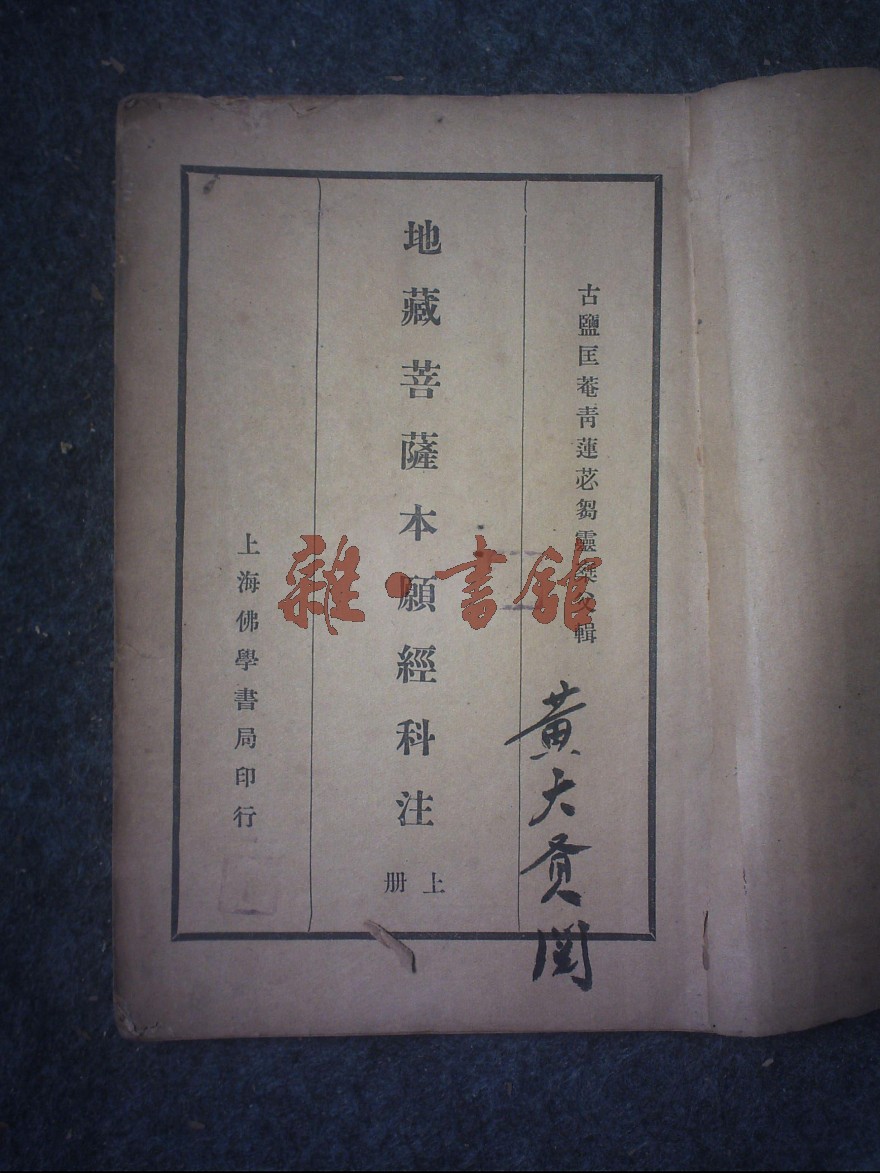 古鹽匡菴青蓮苾芻靈椉父輯
地藏菩薩本願經科注
上册
上海佛學書局印行
黃大賢閱
雜·書館